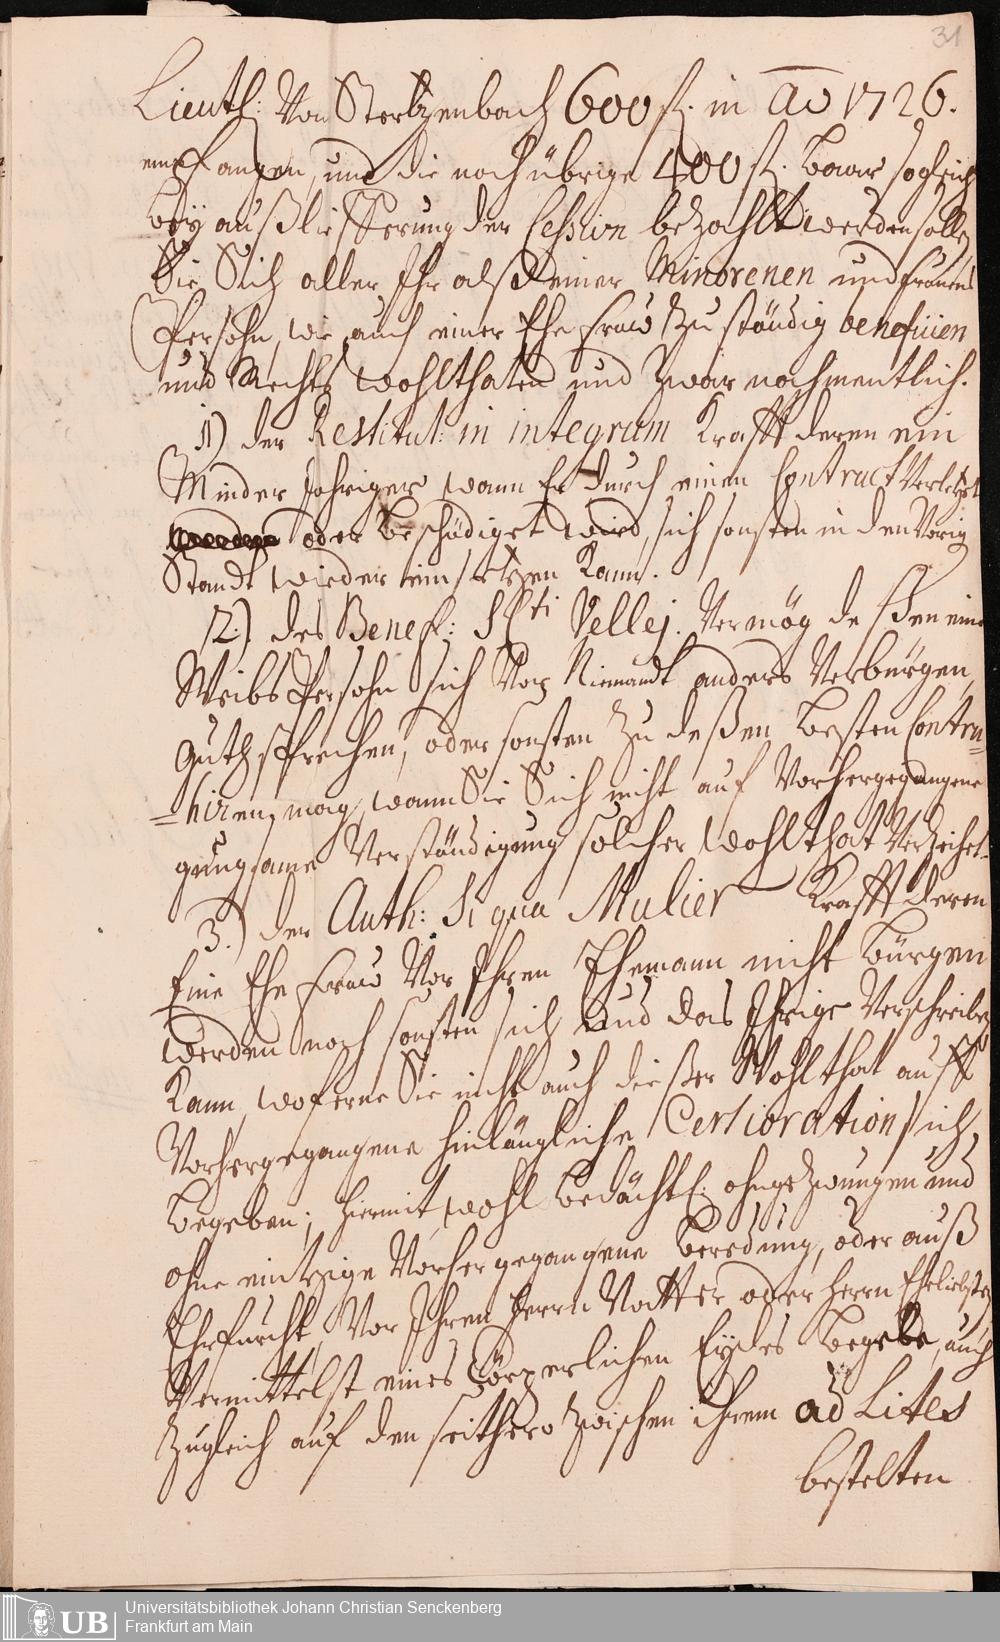 31
Lieuth: Von Stertzenbach 600 fl. in Aō 1726.
empfangen, und die noch übrige 400 fl. baar sogleich
bey außliefferung der Cession bezahlt werden sollen
Sie Sich aller Ihr alß einer Minorenen und frauens
Persohn, wie auch einer Ehe Frau zuständig beneficien
und Rechts Wohlthaten und zwar nahmentlich.
1) der Restitut: in integrum Krafft deren ein
Minder Jähriger wann Er durch einen Contract Verletzet
oder beschädiget wird, sich sonsten in den Vorig
Standt wieder einsetzen Kann.
2.) des Benef: SCti Vellej. Vermög deßen eine
Weibs Persohn sich Vor Niemandt anders Verbürgen,
guthsprechen, oder sonsten zu deßen besten Contra=
=hiren, mag, wann Sie Sich nicht auf Vorhergegangene
gnungsame Verständigung solcher Wohlthat Verzeihet.
3.) der Auth: Si qua Mulier Krafft deren
Eine Ehe Frau Vor Ihren Ehemann nicht bürgen
werden noch sonsten sich und das Ihrige Verschreiben
Kann, woferne Sie nicht auch dießer Wohlthat auff
Vorhergegangene hinlängliche Certioration sich
begeben; hiermit, wohl bedächtl: ohngezwungen und
ohne eintzige Vorhergegangene beredung, oder auß
Ehrfurcht, Vor Ihren Herrn Vatter oder Herrn Eheliebsten
Vermittelst eines Cörperlichen Eydes begebe, auch
zugleich auf den seithero zwischen ihrem ad Lites
bestelten
UB
Universitätsbibliothek Johann Christian Senckenberg
Frankfurt am Main